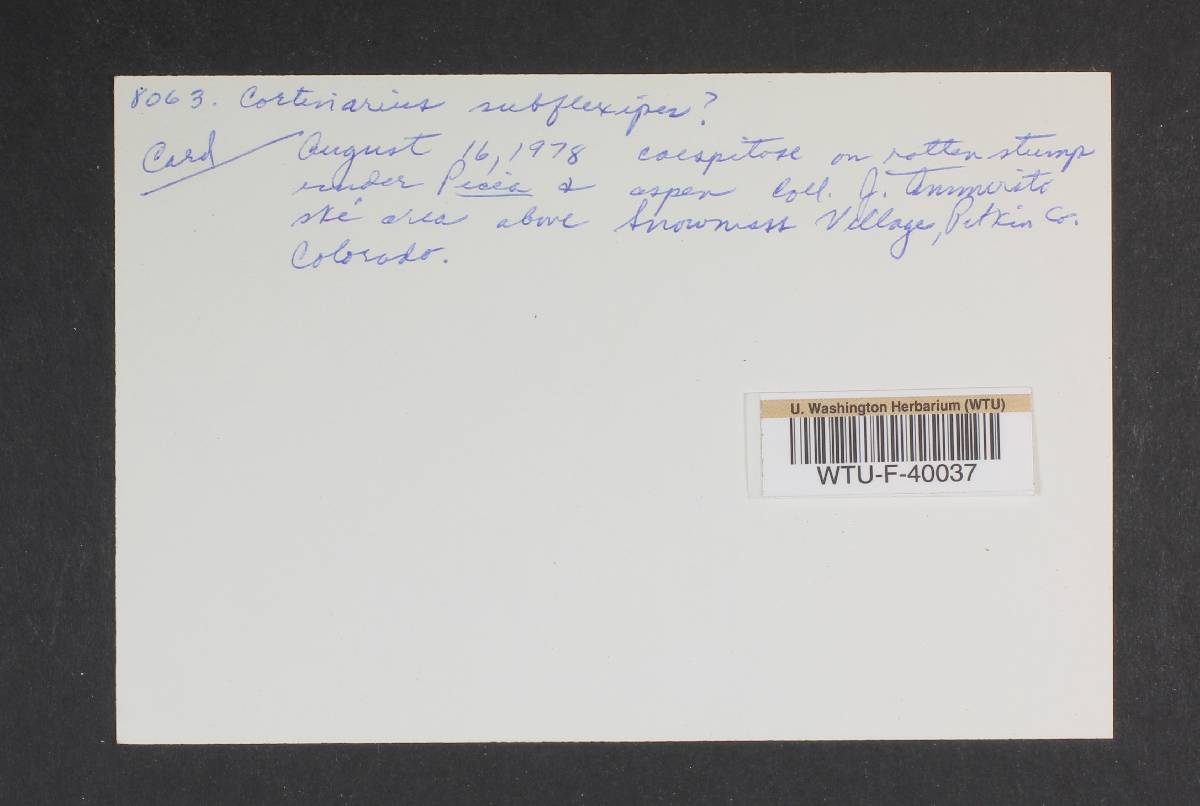 8063. Cortinarius subflexipes?
Card August 16, 1978 caespitose on rotten stump
under Picea & aspen Coll. J. Ammirati
ski area above Snowmass Village, Pitkin Co.
Colorado.
U. Washington Herbarium (WTU)
WTU-F-40037